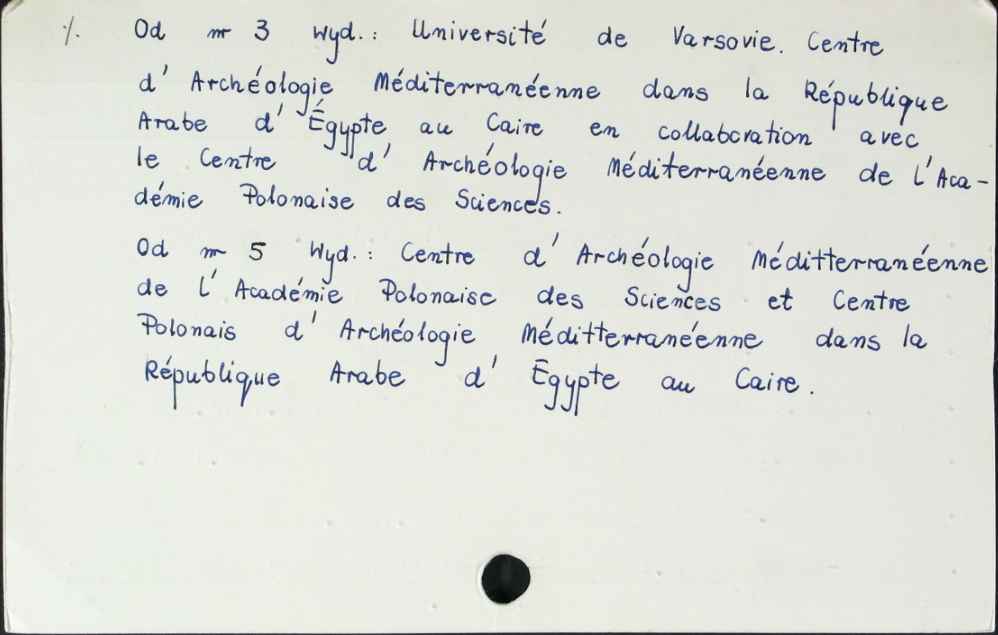 ⁒. Od nr 3 Wyd.: Université de Varsovie. Centre
d'Archéologie Méditerranéenne dans la République
Arabe d'Égypte au Caire en collaboration avec
le Centre d'Archéologie Méditerranéenne de l'Aca-
démie Polonaise des Sciences.
Od nr 5 Wyd.: Centre d'Archéologie Méditterranéenne
de l'Académie Polonaise des Sciences et Centre
Polonais d'Archéologie Méditterranéenne dans la
République Arabe d'Égypte au Caire.